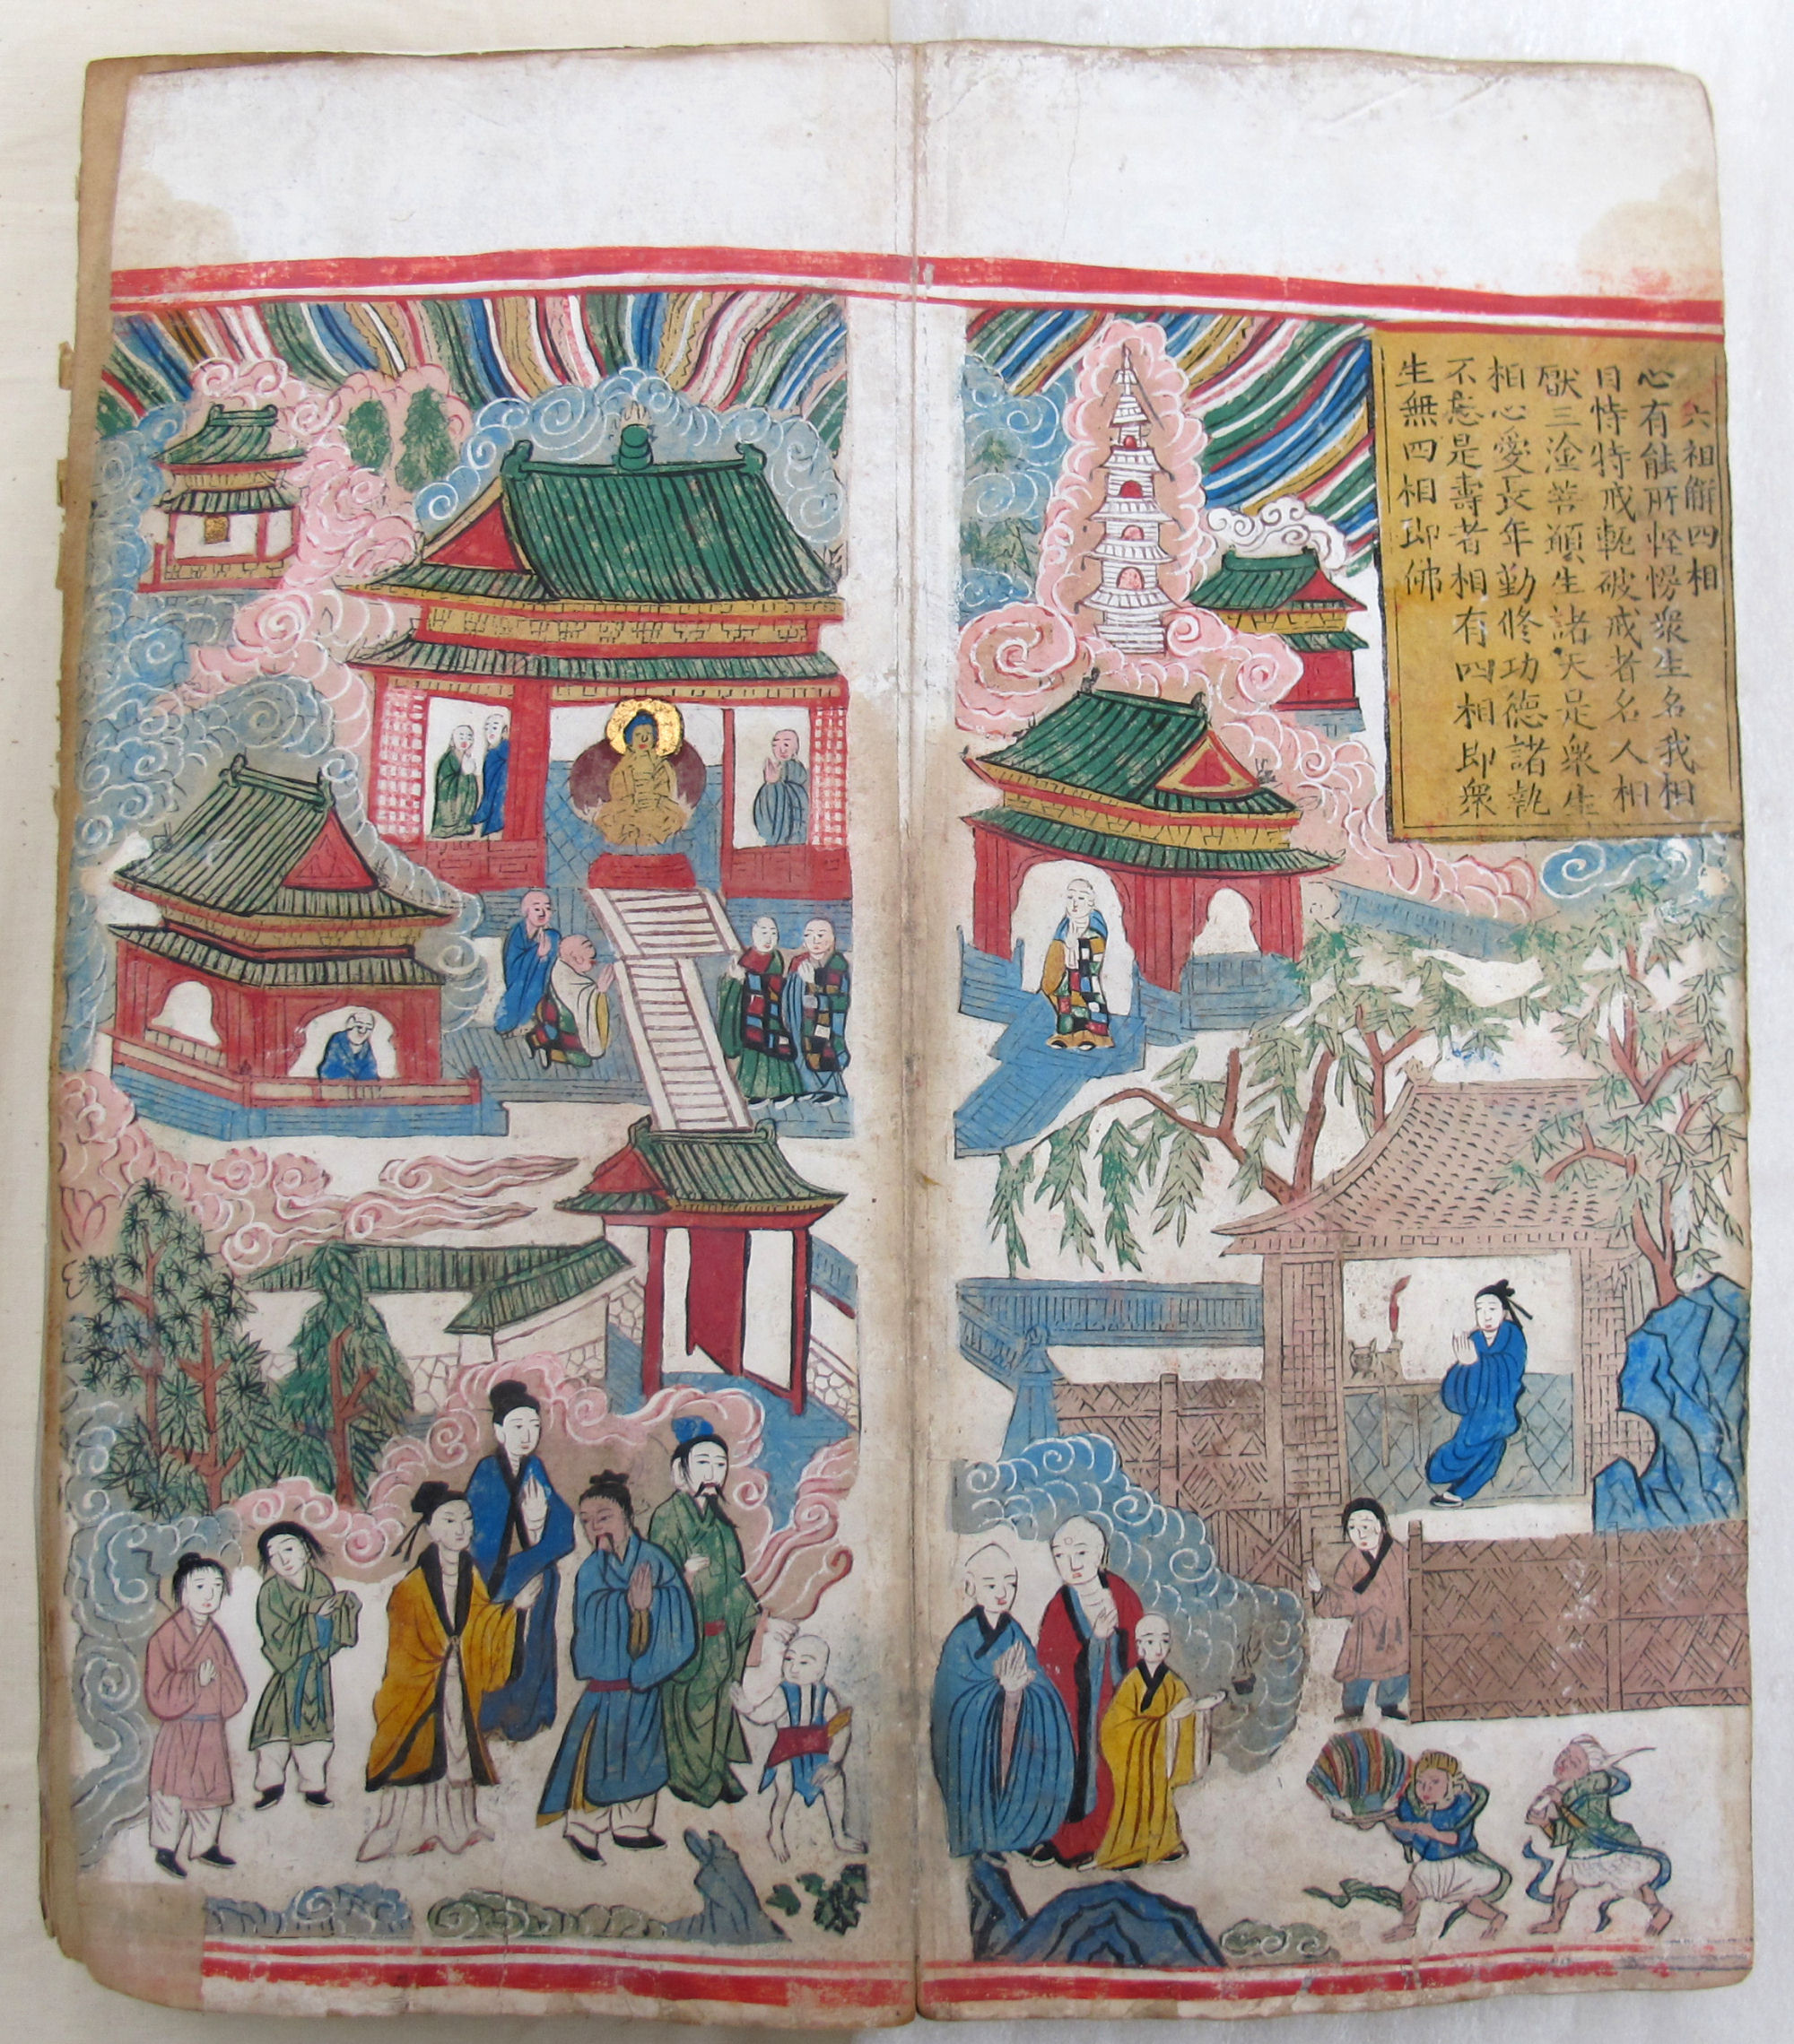 六祖觧四相
心有能所怪愣衆生名我相
自恃持戒軽破戒者名人相
厭三塗苦願生諸天是衆生
相心愛長年勤修功德諸執
不忘是壽者相有四相即衆
生無四相即佛